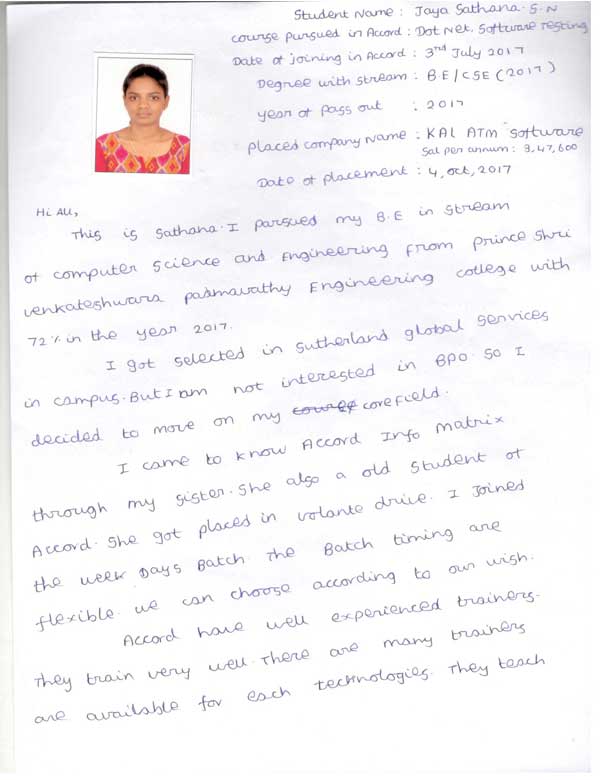 Student Name : Jaya Sathana. S.N
Course pursued in Accord : Dot Net, Software Testing
Date of joining in Accord : 3rd July 2017
Degree with stream : B.E / CSE (2017)
year of pass out : 2017
placed company Name : KAL ATM Software
Sal per annum : 3,47,600
Date of placement : 4, oct, 2017
Hi All,
This is Sathana. I pursued my B.E in stream
of computer science and Engineering from prince shri
venkateshwara padmavathy Engineering college with
72% in the year 2017.
I got selected in Sutherland global services
in campus. But I am not interested in BPO. So I
decided to move on my core field.
I came to know Accord Info matrix
through my sister. She also a old student of
Accord. She got places in volante drive. I joined
the week Days Batch. The Batch timing are
flexible. we can choose according to our wish.
Accord have well experienced trainers.
They train very well. There are many trainers
are available for each technologies. They teach